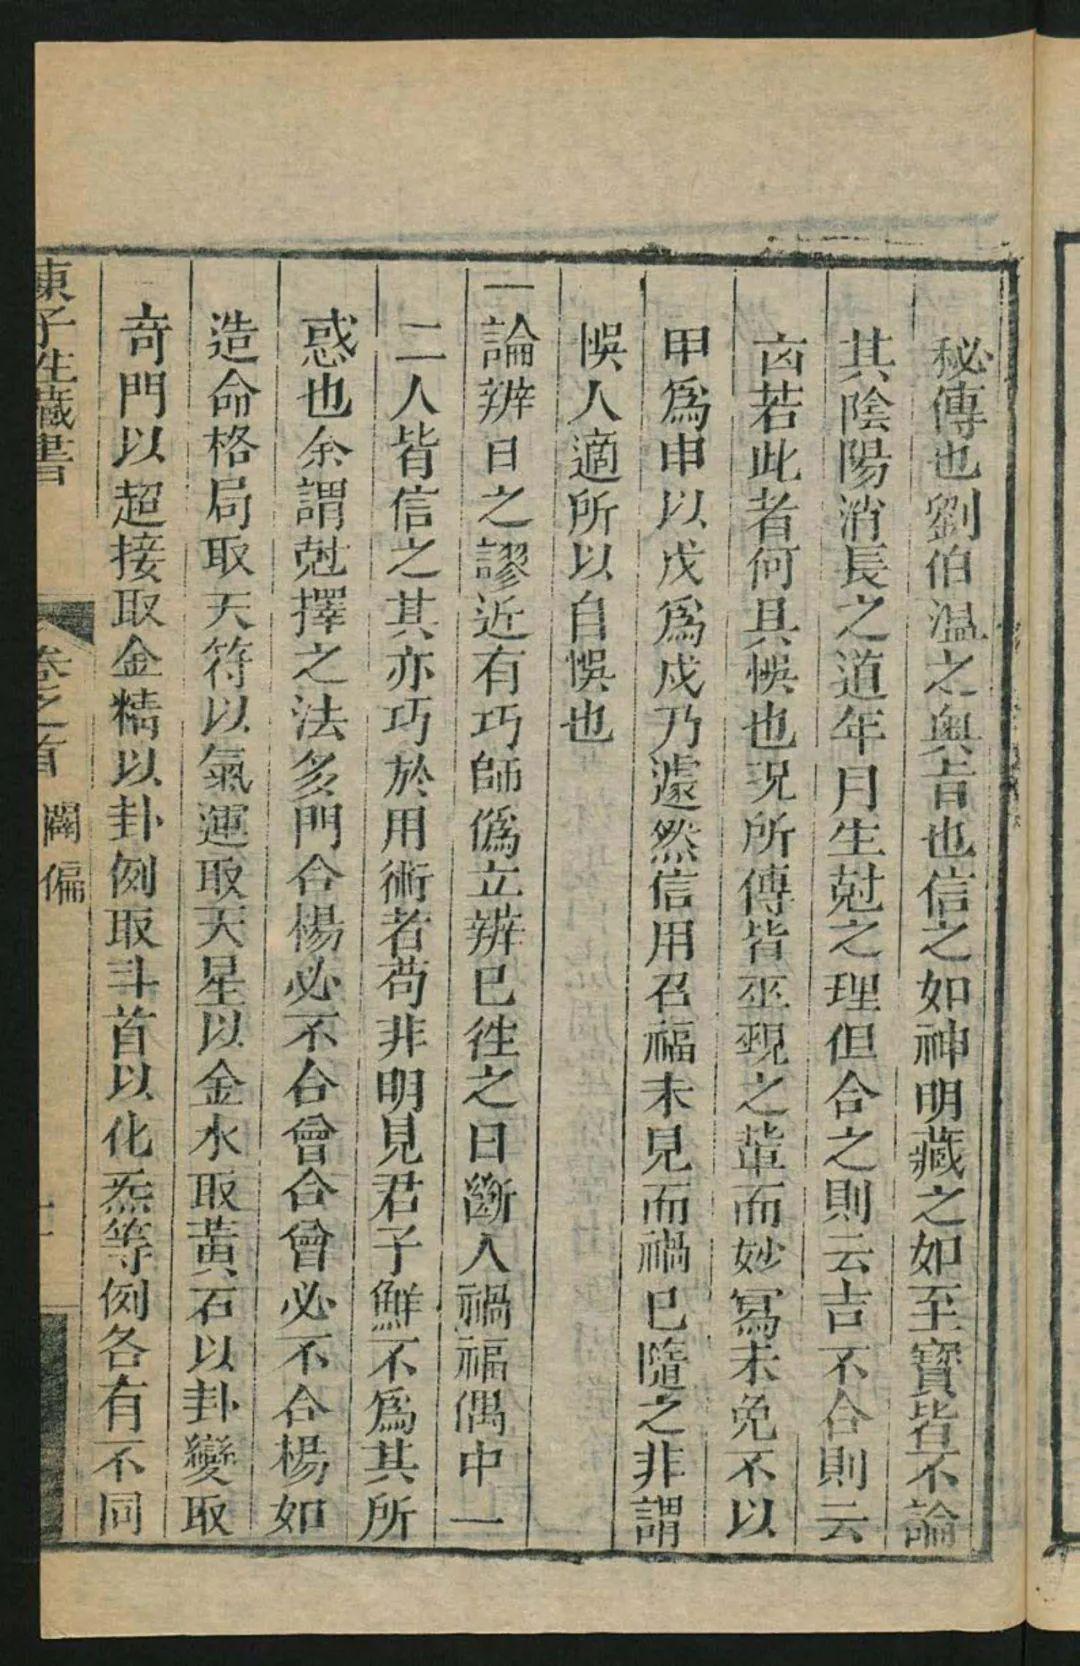 秘傳也劉伯溫之奥旨也信之如神明藏之如至寳皆不論
其陰陽消長之道年月生尅之理但合之則云吉不合則云
凶若此者何其悞也况所傳皆巫覡之輩而妙寫未免不以
甲爲申以戊爲戌乃遽然信用召福未見而禍已隨之非謂
悞人適所以自悞也
一論辨日之謬近有巧師僞立辨已徃之日斷人禍福偶中一
二人皆信之其亦巧於用術者苟非明見君子鮮不爲其所
惑也余謂尅擇之法多門合楊必不合曾合曾必不合楊如
造命格局取天符以氣運取天星以金水取黃石以卦變取
奇門以超接取金精以卦例取斗首以化炁等例各有不同
陳子性藏書
卷之首 闢偏